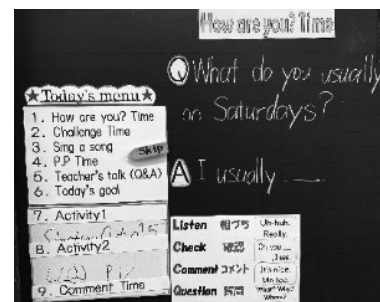 How are you? Time
Q What do you usually
on Saturdays?
A I usually ___.
★Today's menu★
1. How are you? Time
2. Challenge Time
3. Sing a song
SKIP
4. P.P Time
5. Teacher's talk (Q&A)
6. Today's goal
7. Activity1
8. Activity2
9. Comment Time
Listen 相づち Uh-huh.
Really.
Check 確認 Oh you
Comment コメント It's nice.
Question 質問 What? Why?